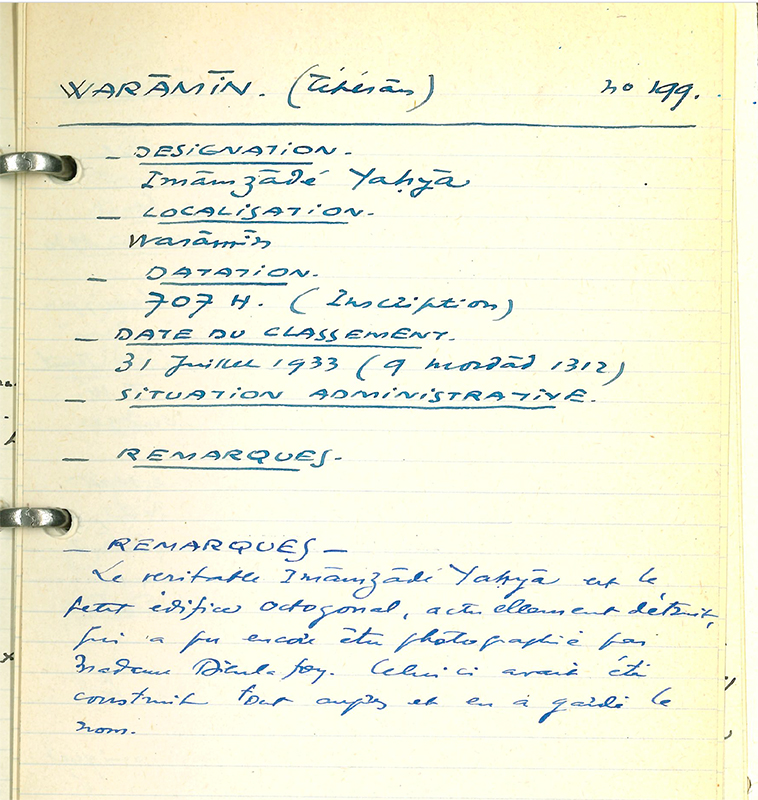 WARĀMĪN. (Téhéran) no 199.
– DESIGNATION.
Imāmzādé Yaḥyā
– LOCALISATION.
Warāmīn
– DATATION.
707 H. (Inscription)
– DATE DU CLASSEMENT.
31 Juillet 1933 (9 mordād 1312)
– SITUATION ADMINISTRATIVE.
– REMARQUES.
– REMARQUES –
Le veritable Imāmzādé Yaḥyā est le
petit édifice octogonal, actuellement détruit,
qui a pu encore être photographié par
Madame Dieulafoy. Celui ci avait été
construit tout auprès et en a gardé le
nom.